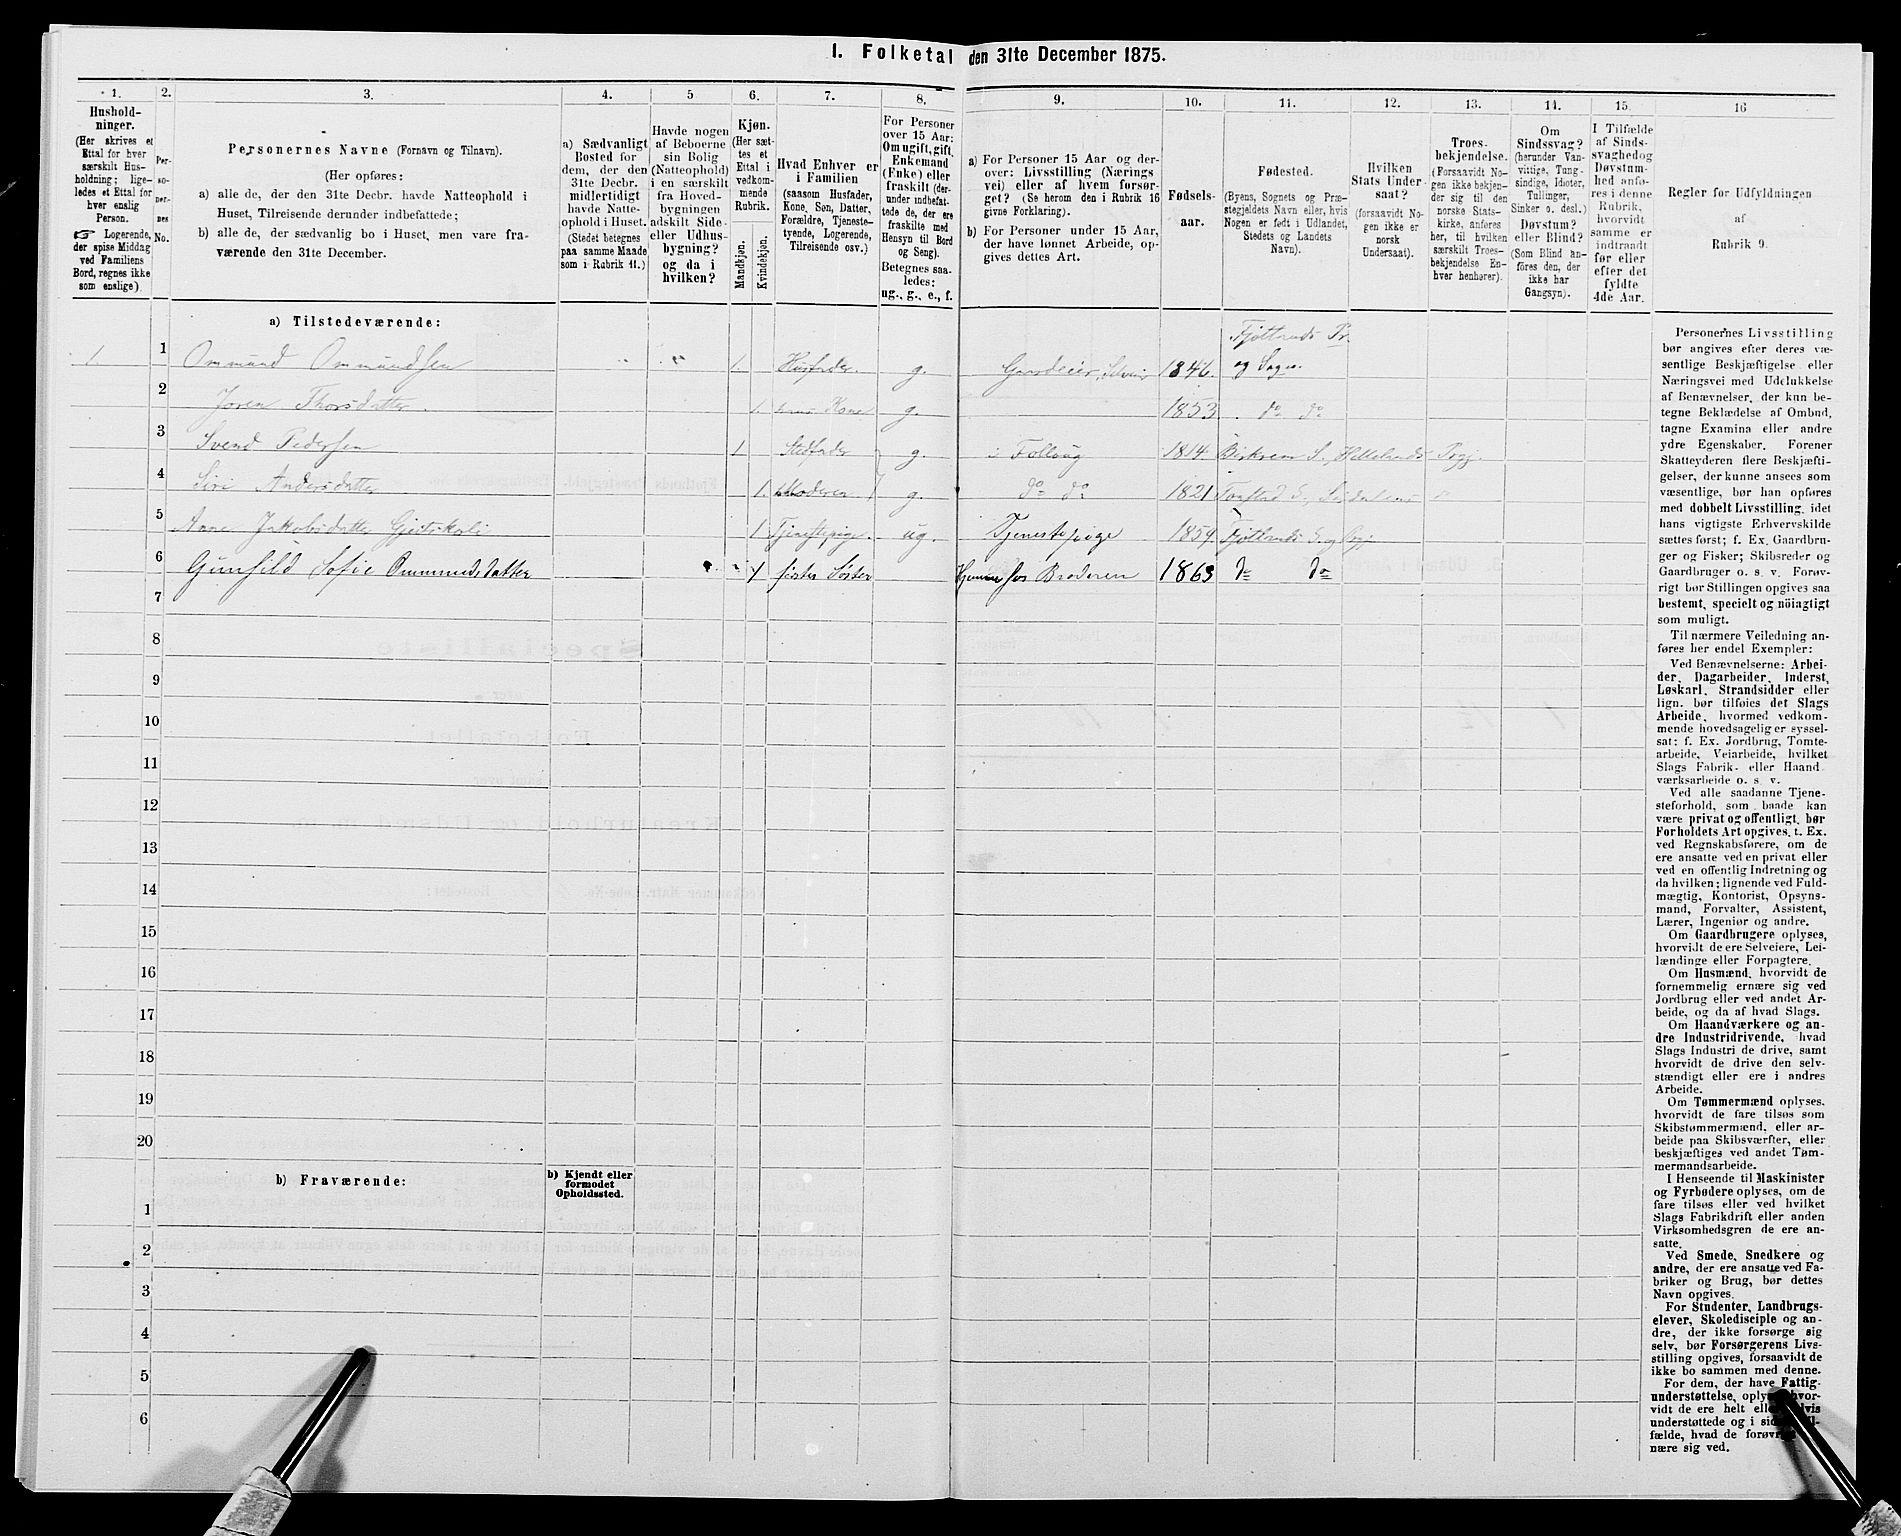 I. Folketal den 31te December 1875.
1. 2. 3. 4. 5 6. 7. 8. 9. 10. 11. 12. 13. 14. 15. 16
Hushold-
ninger.
(Her skrives et
Ettal for hver
særskilt Hus-
holdning; lige-
ledes et Ettal for
hver enslig
Person.
☞ Logerende,
der spise Middag
ved Familiens
Bord, regnes ikke
som enslige).
Per-
so-
ner-
nes
No.
Personernes Navne (Fornavn og Tilnavn).
(Her opføres:
a) alle de, der den 31te Decbr. havde Natteophold i
Huset, Tilreisende derunder indbefattede;
b) alle de, der sædvanlig bo i Huset, men vare fra-
værende den 31te December.
a) Sædvanligt
Bosted for
dem, der den
31te Decbr.
midlertidigt
havde Natte-
ophold i Huset.
(Stedet betegnes
paa samme Maade
som i Rubrik 11.)
Havde nogen
af Beboerne
sin Bolig
(Natteophold)
i en særskilt
fra Hoved-
bygningen
adskilt Side-
eller Udhus-
bygning?
og da i
hvilken?
Kjøn.
(Her sæt-
tes et
Ettal i
vedkom-
mende
Rubrik.
Mandkjøn.
Kvindekjøn.
Hvad Enhver er
i Familien
(saasom Husfader,
Kone, Søn, Datter,
Forældre, Tjeneste-
tyende, Logerende,
Tilreisende osv.)
For Personer
over 15 Aar:
Om ugift, gift,
Enkemand
(Enke) eller
fraskilt (der-
under indbefat-
tede de, der ere
fraskilte med
Hensyn til Bord
og Seng).
Betegnes saa-
ledes:
ug., g., e., f.
a) For Personer 15 Aar og der-
over: Livsstilling (Nærings
vei) eller af hvem forsør-
get? (Se herom den i Rubrik 16
givne Forklaring).
b) For Personer under 15 Aar,
der have lønnet Arbeide, op-
gives dettes Art.
Fødsels-
aar.
Fødested.
(Byens, Sognets og Præ-
stegjeldets Navn eller, hvis
Nogen er født i Udlandet,
Stedets og Landets
Navn).
Hvilken
Stats Under-
saat?
(forsaavidt No-
gen ikke er
norsk
Undersaat).
Troes-
bekjendelse.
(Forsaavidt No-
gen ikke bekjen-
der sig til den
norske Stats-
kirke, anføres
her, til hvilken
særskilt Troes-
bekjendelse En-
hver henhører).
Om
Sindssvag?
(herunder Van-
vittige, Tung-
sindige, Idioter,
Tullinger,
Sinker o. desl.)
Døvstum?
eller Blind?
(Som Blind an-
føres den, der
ikke har
Gangsyn).
I Tilfælde
af Sinds-
svaghed og
Døvstum-
hed anfø-
res i denne
Rubrik,
hvorvidt
samme er
indtraadt
før eller
efter det
fyldte
4de Aar.
Regler for Udfyldningen
af
Rubrik 9.
a) Tilstedeværende:
1 1 Ommund Ommundsen 1. Husfader. g. Gaardeier, Selveier 1846. Fjotlands Pr. og Sogn.
2 Joren Thorsdatter. 1. hans Kone g. 1853 do do
3 Svend Pedersen 1 Stedfader g. i Follaug 1814 Birkrem S., Hellelands Prgj.
4 Siri Andersdatter 1. Moderen g. do do 1821 Tonstad S.,
5 Anne Jakobsdatter 1 Tjenestepige. ug. Tjenestepige 1859 Fjotlands S. og Prgj.
6 Gunhild Sofie Ommundsdatter 1 Søster Hjemme hos Broderen 1863 do do
7
8
9
10
11
12
13
14
15
16
17
18
19
20
b) Fraværende:
b) Kjendt eller
formodet
Opholdssted.
1
2
3
4
5
6
Personernes Livsstilling
bør angives efter deres væ-
sentlige Beskjæftigelse eller
Næringsvei med Udelukkelse
af Benævnelser, der kun be-
tegne Beklædelse af Ombud,
tagne Examina eller andre
ydre Egenskaber. Forener
Skatteyderen flere Beskjæfti-
gelser, der kunne ansees som
væsentlige, bør han opføres
med dobbelt Livsstilling, idet
hans vigtigste Erhvervskilde
sættes først; f. Ex. Gaardbru-
ger og Fisker; Skibsreder og
Gaardbruger o. s. v. Forøv-
rigt bør Stillingen opgives saa
bestemt, specielt og nöiagtigt
som muligt.
Til nærmere Veiledning an-
føres her endel Exempler:
Ved Benævnelserne: Arbei-
der, Dagarbeider, Inderst,
Løskarl, Strandsidder eller
lign. bør tilføies det Slags
Arbeide, hvormed vedkom-
mende hovedsagelig er syssel-
sat; f. Ex. Jordbrug, Tomte-
arbeide, Veiarbeide, hvilket
Slags Fabrik- eller Haand
værksarbeide o. s. v.
Ved alle saadanne Tjene-
steforhold, som baade kan
være privat og offentligt, bør
Forholdets Art opgives, t. Ex.
ved Regnskabsførere, om de
ere ansatte ved en privat eller
ved en offentlig Indretning og
da hvilken; lignende ved Fuld-
mægtig, Kontorist, Opsyns-
mand, Forvalter, Assistent,
Lærer, Ingeniør og andre.
Om Gaardbrugere oplyses,
hvorvidt de ere Selveiere, Lei-
lændinge eller Forpagtere.
Om Husmænd, hvorvidt de
fornemmelig ernære sig ved
Jordbrug eller ved andet Ar-
beide, og da af hvad Slags.
Om Haandværkere og an-
dre Industridrivende, hvad
Slags Industri de drive, samt
hvorvidt de drive den selv-
stændigt eller ere i andres
Arbeide.
Om Tømmermænd oplyses,
hvorvidt de fare tilsøs som
Skibstømmermænd, eller ar-
beide paa Skibsværfter, eller
beskjæftiges ved andet Tøm-
mermandsarbeide.
I Henseende til Maskinister
og Fyrbødere oplyses, om de
fare tilsøs eller ved hvilket
Slags Fabrikdrift eller anden
Virksomhedsgren de ere an-
satte.
Ved Smede, Snedkere og
andre, der ere ansatte ved Fa-
briker og Brug, bør dettes
Navn opgives.
For Studenter, Landbrugs-
elever, Skoledisciple og an-
dre, der ikke forsørge sig
selv, bør Forsørgerens Livs-
stilling opgives, forsaavidt de
ikke bo sammen med denne.
For dem, der have Fattig-
understøttelse, oplyses, hvor-
vidt de ere helt eller delvis
understøttede og i sidste Til-
fælde, hvad de forøvrigt
nære sig ved.